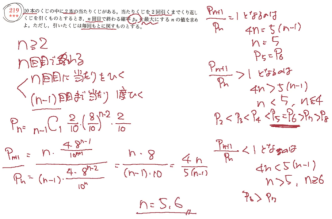 219 10本のくじの中に2本の当たりくじがある。当たりくじを3回引くまでくり返し
くじを引くものとするとき，n回目で終わる確率をPnを最大にするnの値を求め
よ。ただし，引いたくじは毎回もとに戻すものとする。
n≧2
n回目で終わる
n回目に当たりをひく
(n-1)回目まで当たり 1度ひく
Pn = n-1C1 2/10 (8/10)^{n-2} 2/10
Pn+1/Pn = n・4・8^{n-1}/10^{n+1} / (n-1)・4・8^{n-2}/10^n = n・8/(n-1)・10 = 4n/5(n-1)
n=5,6
Pn+1/Pn = 1 となるのは
4n = 5(n-1)
n = 5
P5 = P6
Pn+1/Pn > 1 となるのは
4n > 5(n-1)
n < 5, n≦4
P2<P3<P4<P5=P6>P7>P8
Pn+1/Pn < 1 となるのは
4n < 5(n-1)
n > 5, n≧6
P6 > P7